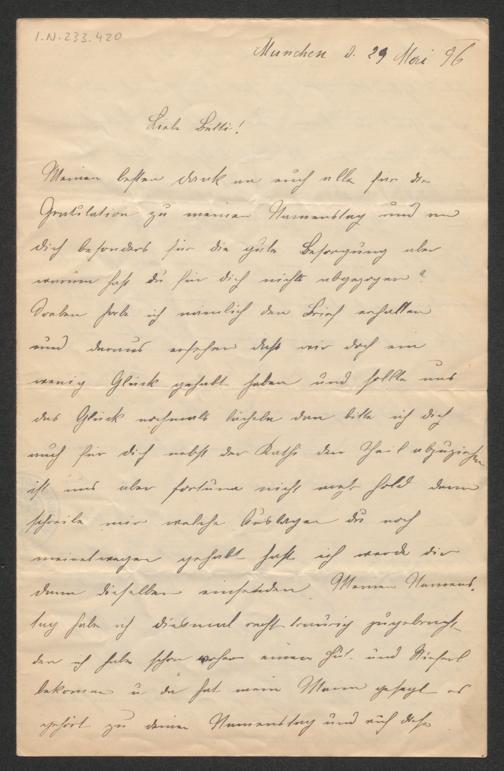 I.N. 233.420
München d. 29 Mai 96
Liebe Betti!
Meinen besten Dank an euch alle für die
Gratulation zu meinen Namenstag und an
dich besonders für die gute Besorgung aber
warum hast du für dich nichts abgezogen?
Soeben habe ich nämlich den Brief erhalten
und daraus ersehen daß wir doch ein
wenig Glück gehabt haben und sollte uns
das Glück nochmals lächeln dan bitte ich dich
auch für dich nebst der Kathi den Theil abzuziehen
ist uns aber fortuna nicht mehr hold dann
schreibe mir welche Auslagen du noch
meinetwegen gehabt hast ich werde dir
dann dieselben einsenden Meinen Namens-
tag habe ich diesmal recht traurig zugebracht
den ich habe schon vorher einen Hut und
bekommen u da hat mein Mann gesagt es
gehört zu deinen Namenstag und auch diese